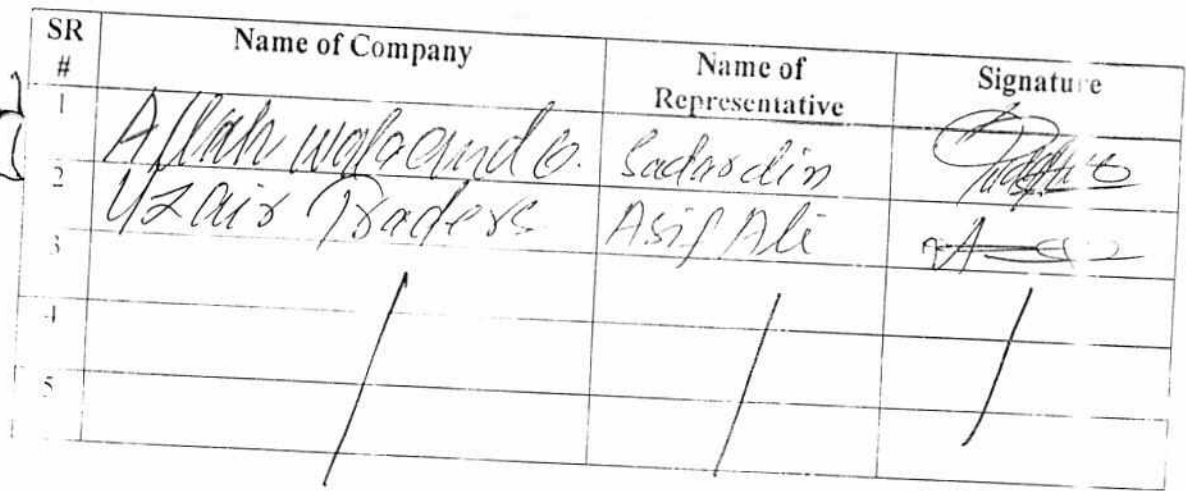 SR # Name of Company Name of Representative Signature
1 Allah wala and Co. Sadardin
2 Uzair Traders Asif Ali
3
4
5